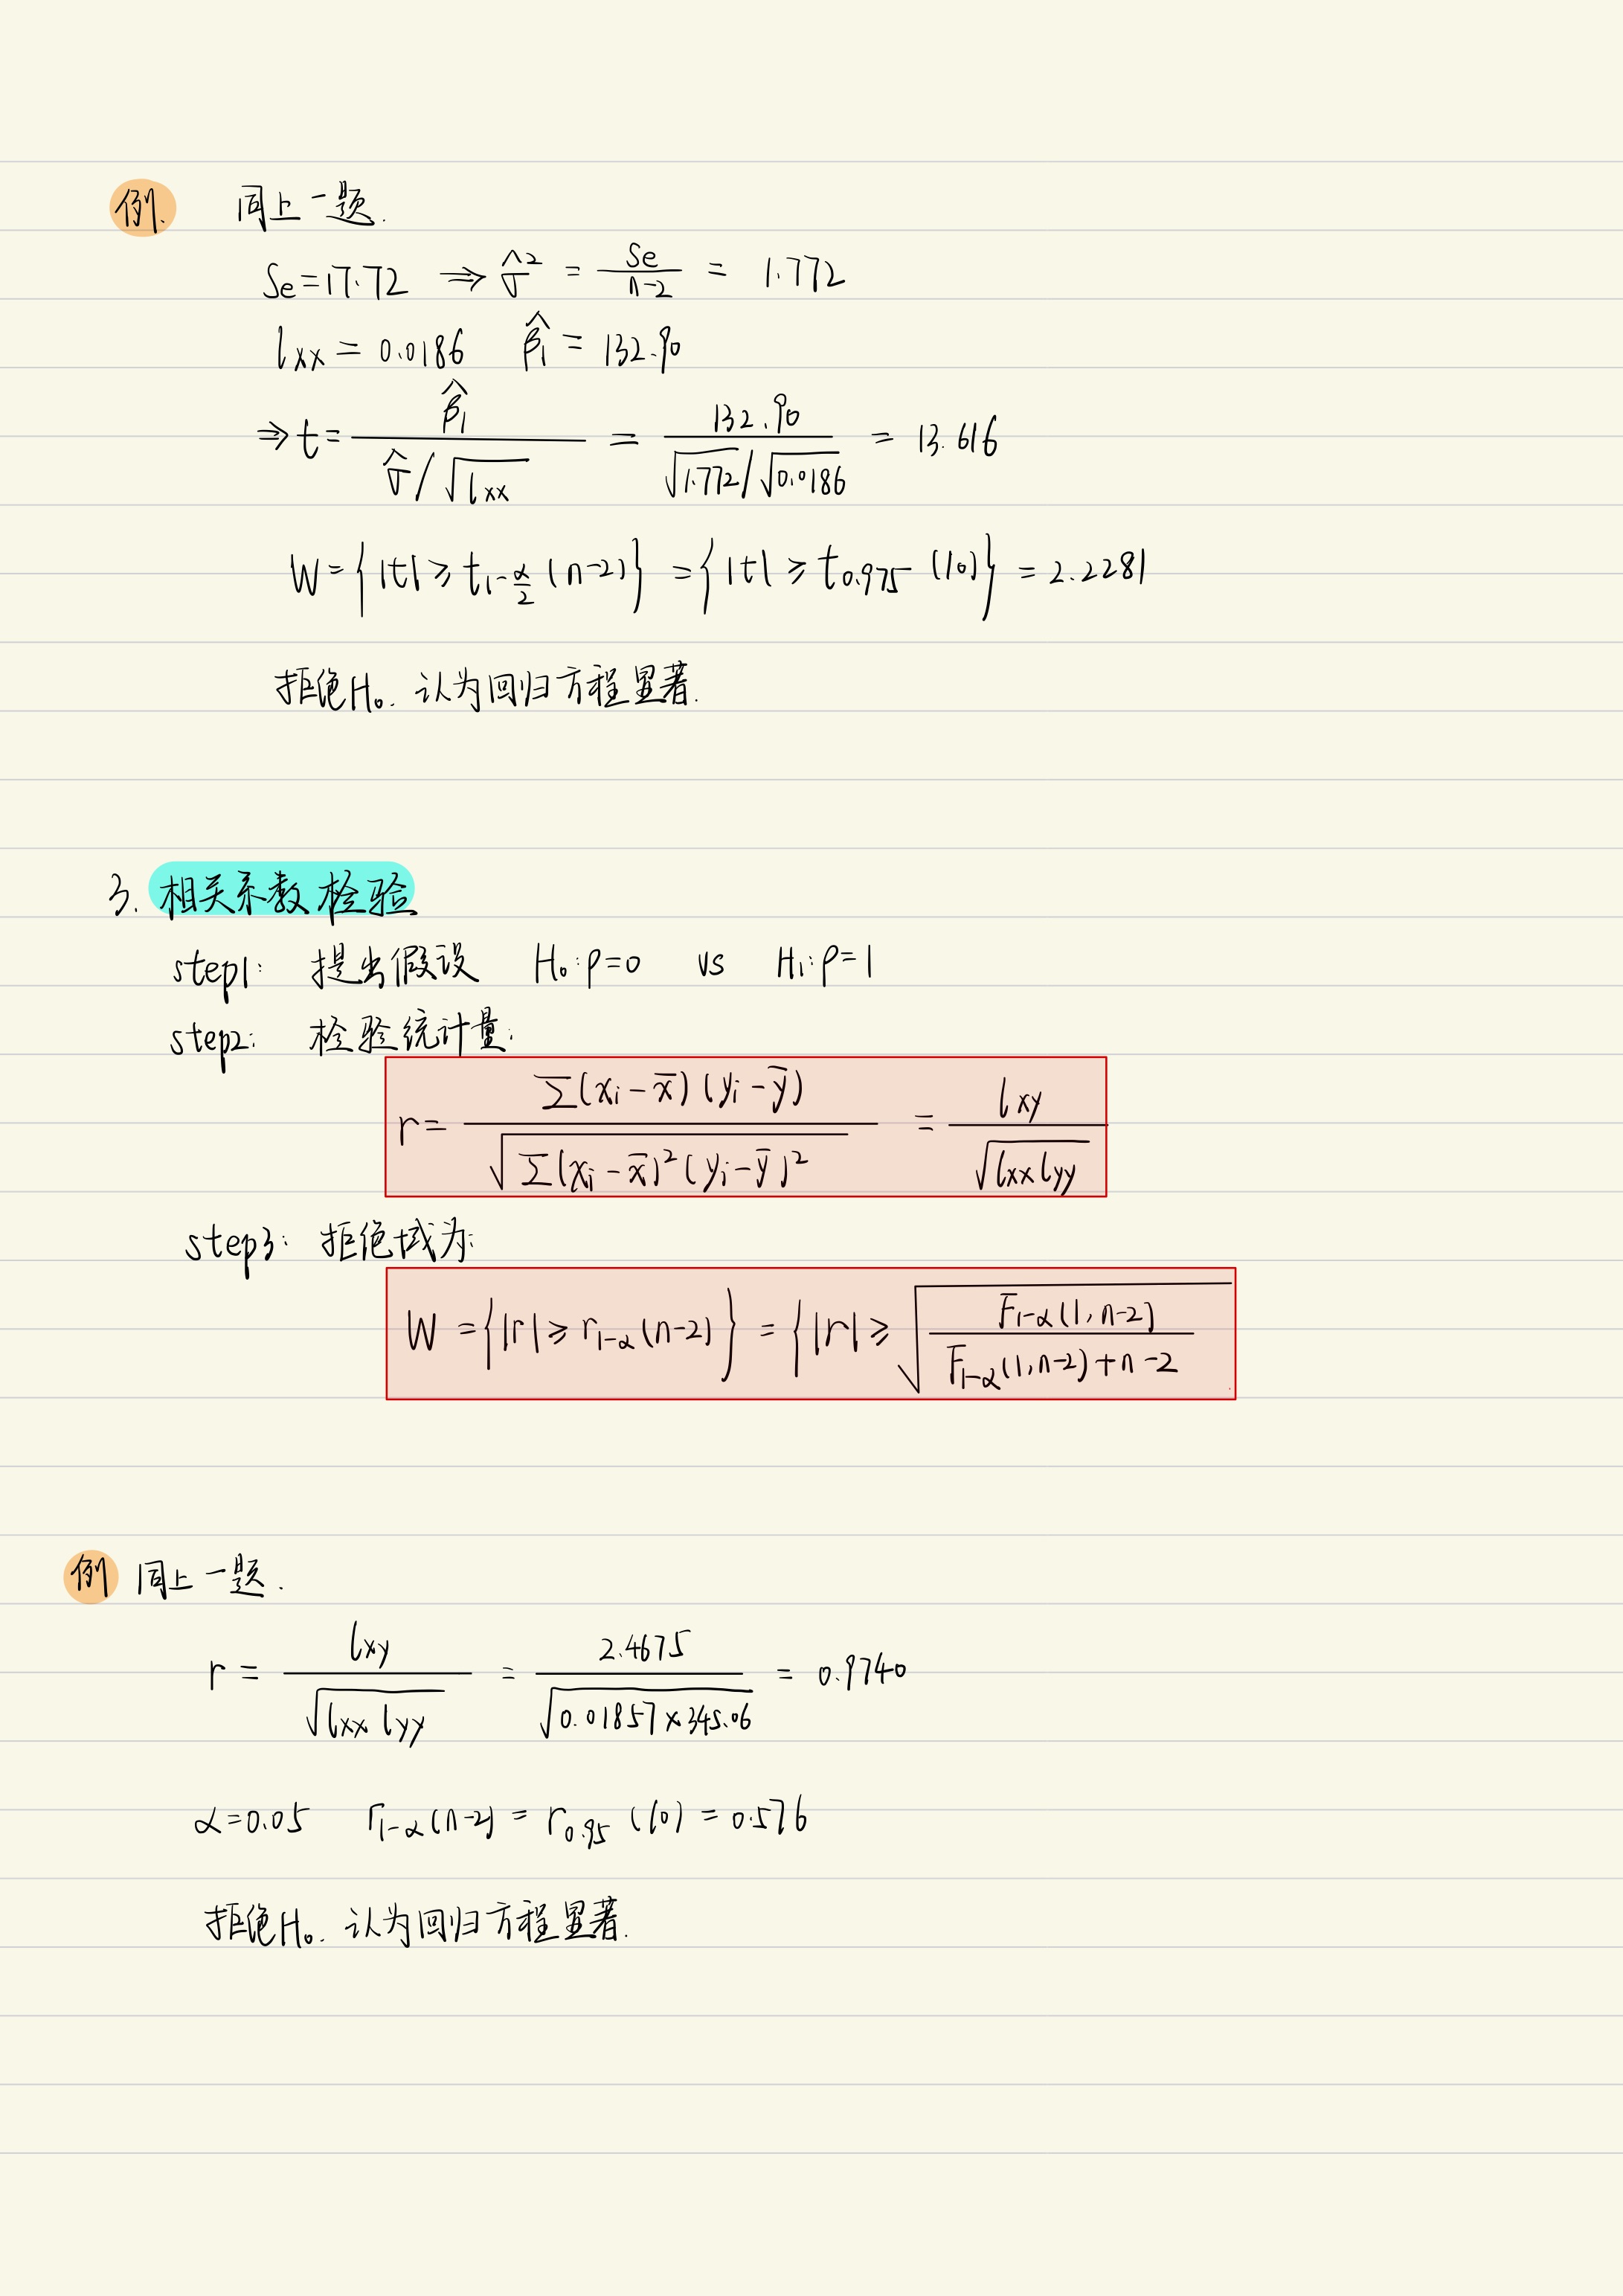 例. 同上一题.
Se=17.72 ⇒ σ̂² = Se/(n-2) = 1.772
lxx = 0.0186 β̂₁ = 132.90
⇒ t = β̂₁/(σ̂/√lxx) = 132.90/(√1.772/√0.0186) = 13.616
W={|t| ≥ t_{1-α/2}(n-2)} = {|t| ≥ t_{0.975}(10)} = 2.2281
拒绝H₀. 认为回归方程显著.
3. 相关系数检验
step1: 提出假设 H₀:ρ=0 vs H₁:ρ=1
step2: 检验统计量:
r = ∑(xᵢ-x̄)(yᵢ-ȳ)/√(∑(xᵢ-x̄)²(yᵢ-ȳ)²) = lxy/√(lxx lyy)
step3: 拒绝域为:
W = {|r| ≥ r_{1-α}(n-2)} = {|r| ≥ √(F_{1-α}(1,n-2)/(F_{1-α}(1,n-2)+n-2))
例 同上一题.
r = lxy/√(lxx lyy) = 2.4675/√(0.01857×345.06) = 0.9740
α=0.05 r_{1-α}(n-2) = r_{0.95}(10) = 0.576
拒绝H₀. 认为回归方程显著.